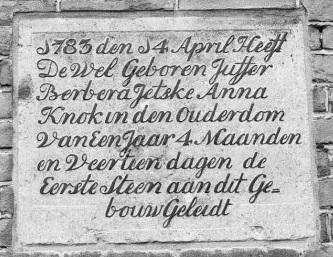 1783 den 14 April Heeft
De Wel Geboren Juffer
Berbera Jetske Anna
Knok in den Ouderdom
Van Een Jaar 4 Maanden
en Veertien dagen de
Eerste Steen aan dit Ge=
bouw Geleidt